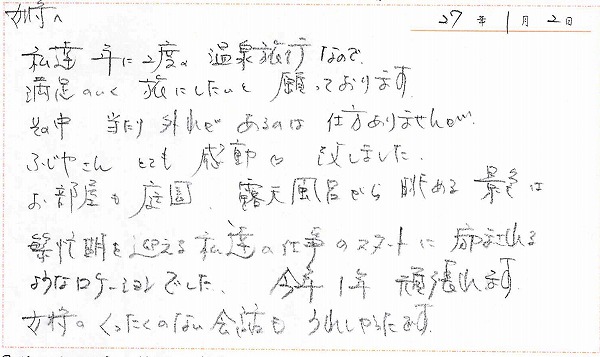 女将へ
27年1月2日
私達 年に2度の 温泉旅行なので、
満足のいく 旅にしたいと 願っております。
その中 当たり外れが あるのは 仕方ありませんが、
ふじやさん とても 感動 致しました。
お部屋も 庭園、露天風呂から 眺める 景色は
繁忙期を迎える私達の仕事のスタートに
ようなロケーションでした。 今年1年 頑張れます。
女将の くったくのない会話も うれしかったです。